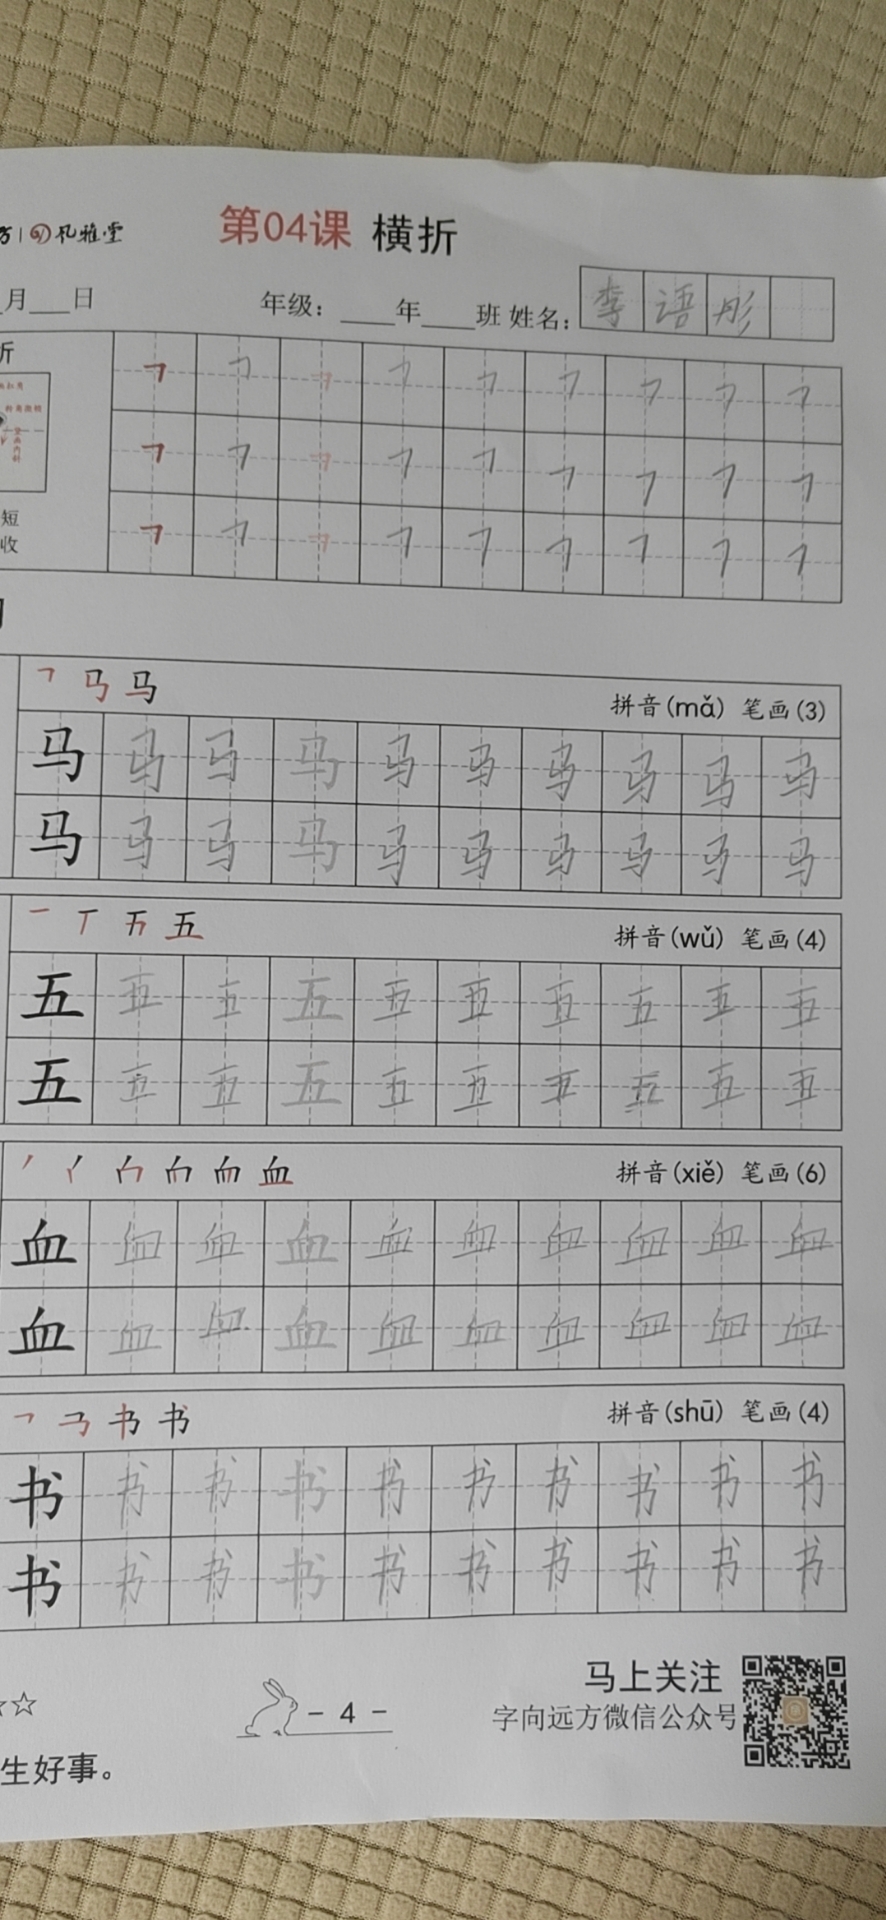 第04课 横折
月 日 年级： 年 班 姓名： 李语彤
折
短
收
拼音(mǎ) 笔画(3)
马 马 马 马 马 马 马 马 马 马
马 马 马 马 马 马 马 马 马 马
拼音(wǔ) 笔画(4)
五 五 五 五 五 五 五 五 五 五
五 五 五 五 五 五 五 五 五 五
拼音(xiě) 笔画(6)
血 血 血 血 血 血 血 血 血 血
血 血 血 血 血 血 血 血 血 血
拼音(shū) 笔画(4)
书 书 书 书 书 书 书 书 书 书
书 书 书 书 书 书 书 书 书 书
马上关注
字向远方微信公众号
- 4 -
生好事。